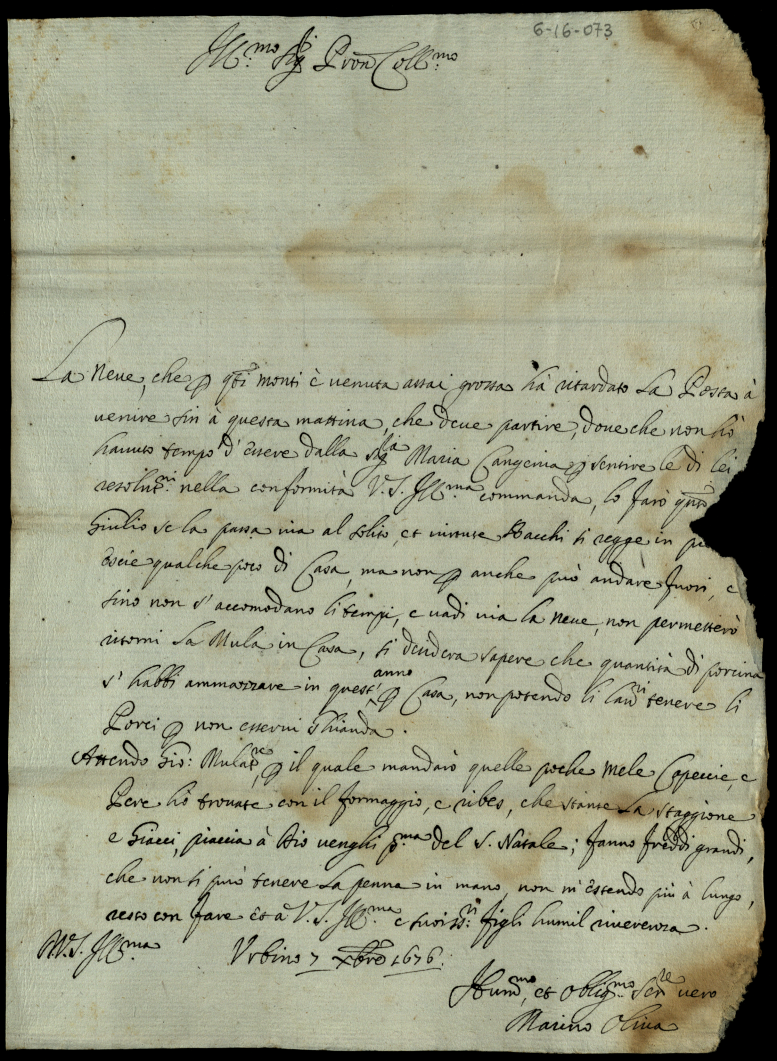 6-16-073
Ill.mo Sig.r Pron Coll.mo
La neve, che p q.ti monti è venuta assai grossa hà ritardato la Posta à
venire sin à questa mattina, che deve partire, dove che non hò
havuto tempo d'essere dalla Sig.ra Maria p sentire le di lei
resolut.ni nella conformità V.S. Ill.ma commanda, lo farò
Giulio se la passa via al solito, et si regge in
Escie qualche poco di Casa, ma non p anche può andare fuori, e
sino non s'accomodano li tempi, e vadi via la neve, non permetterò
ritorni la Mula in Casa, si desidera sapere che quantità di porcina
s'habbi ammazzare in quest'anno p Casa, non potendo li tenere li
Porci p non esservi Ghianda.
Attendo Gio: p il quale mandarò quelle poche mele e
Pere hò trovate con il formaggio, e ribes, che stante la staggione
e Giacci, piaccia à Dio venghi p.ma del S. Natale; fanno freddi grandi,
che non si può tenere la penna in mano, non m'estendo più à lungo,
resto con fare à V.S. Ill.ma e figli humil riverenza.
D.V.S. Ill.ma Urbino 7 Xbre 1676.
Hum.mo, et Oblig.mo Ser.re vero
Marino Oliva